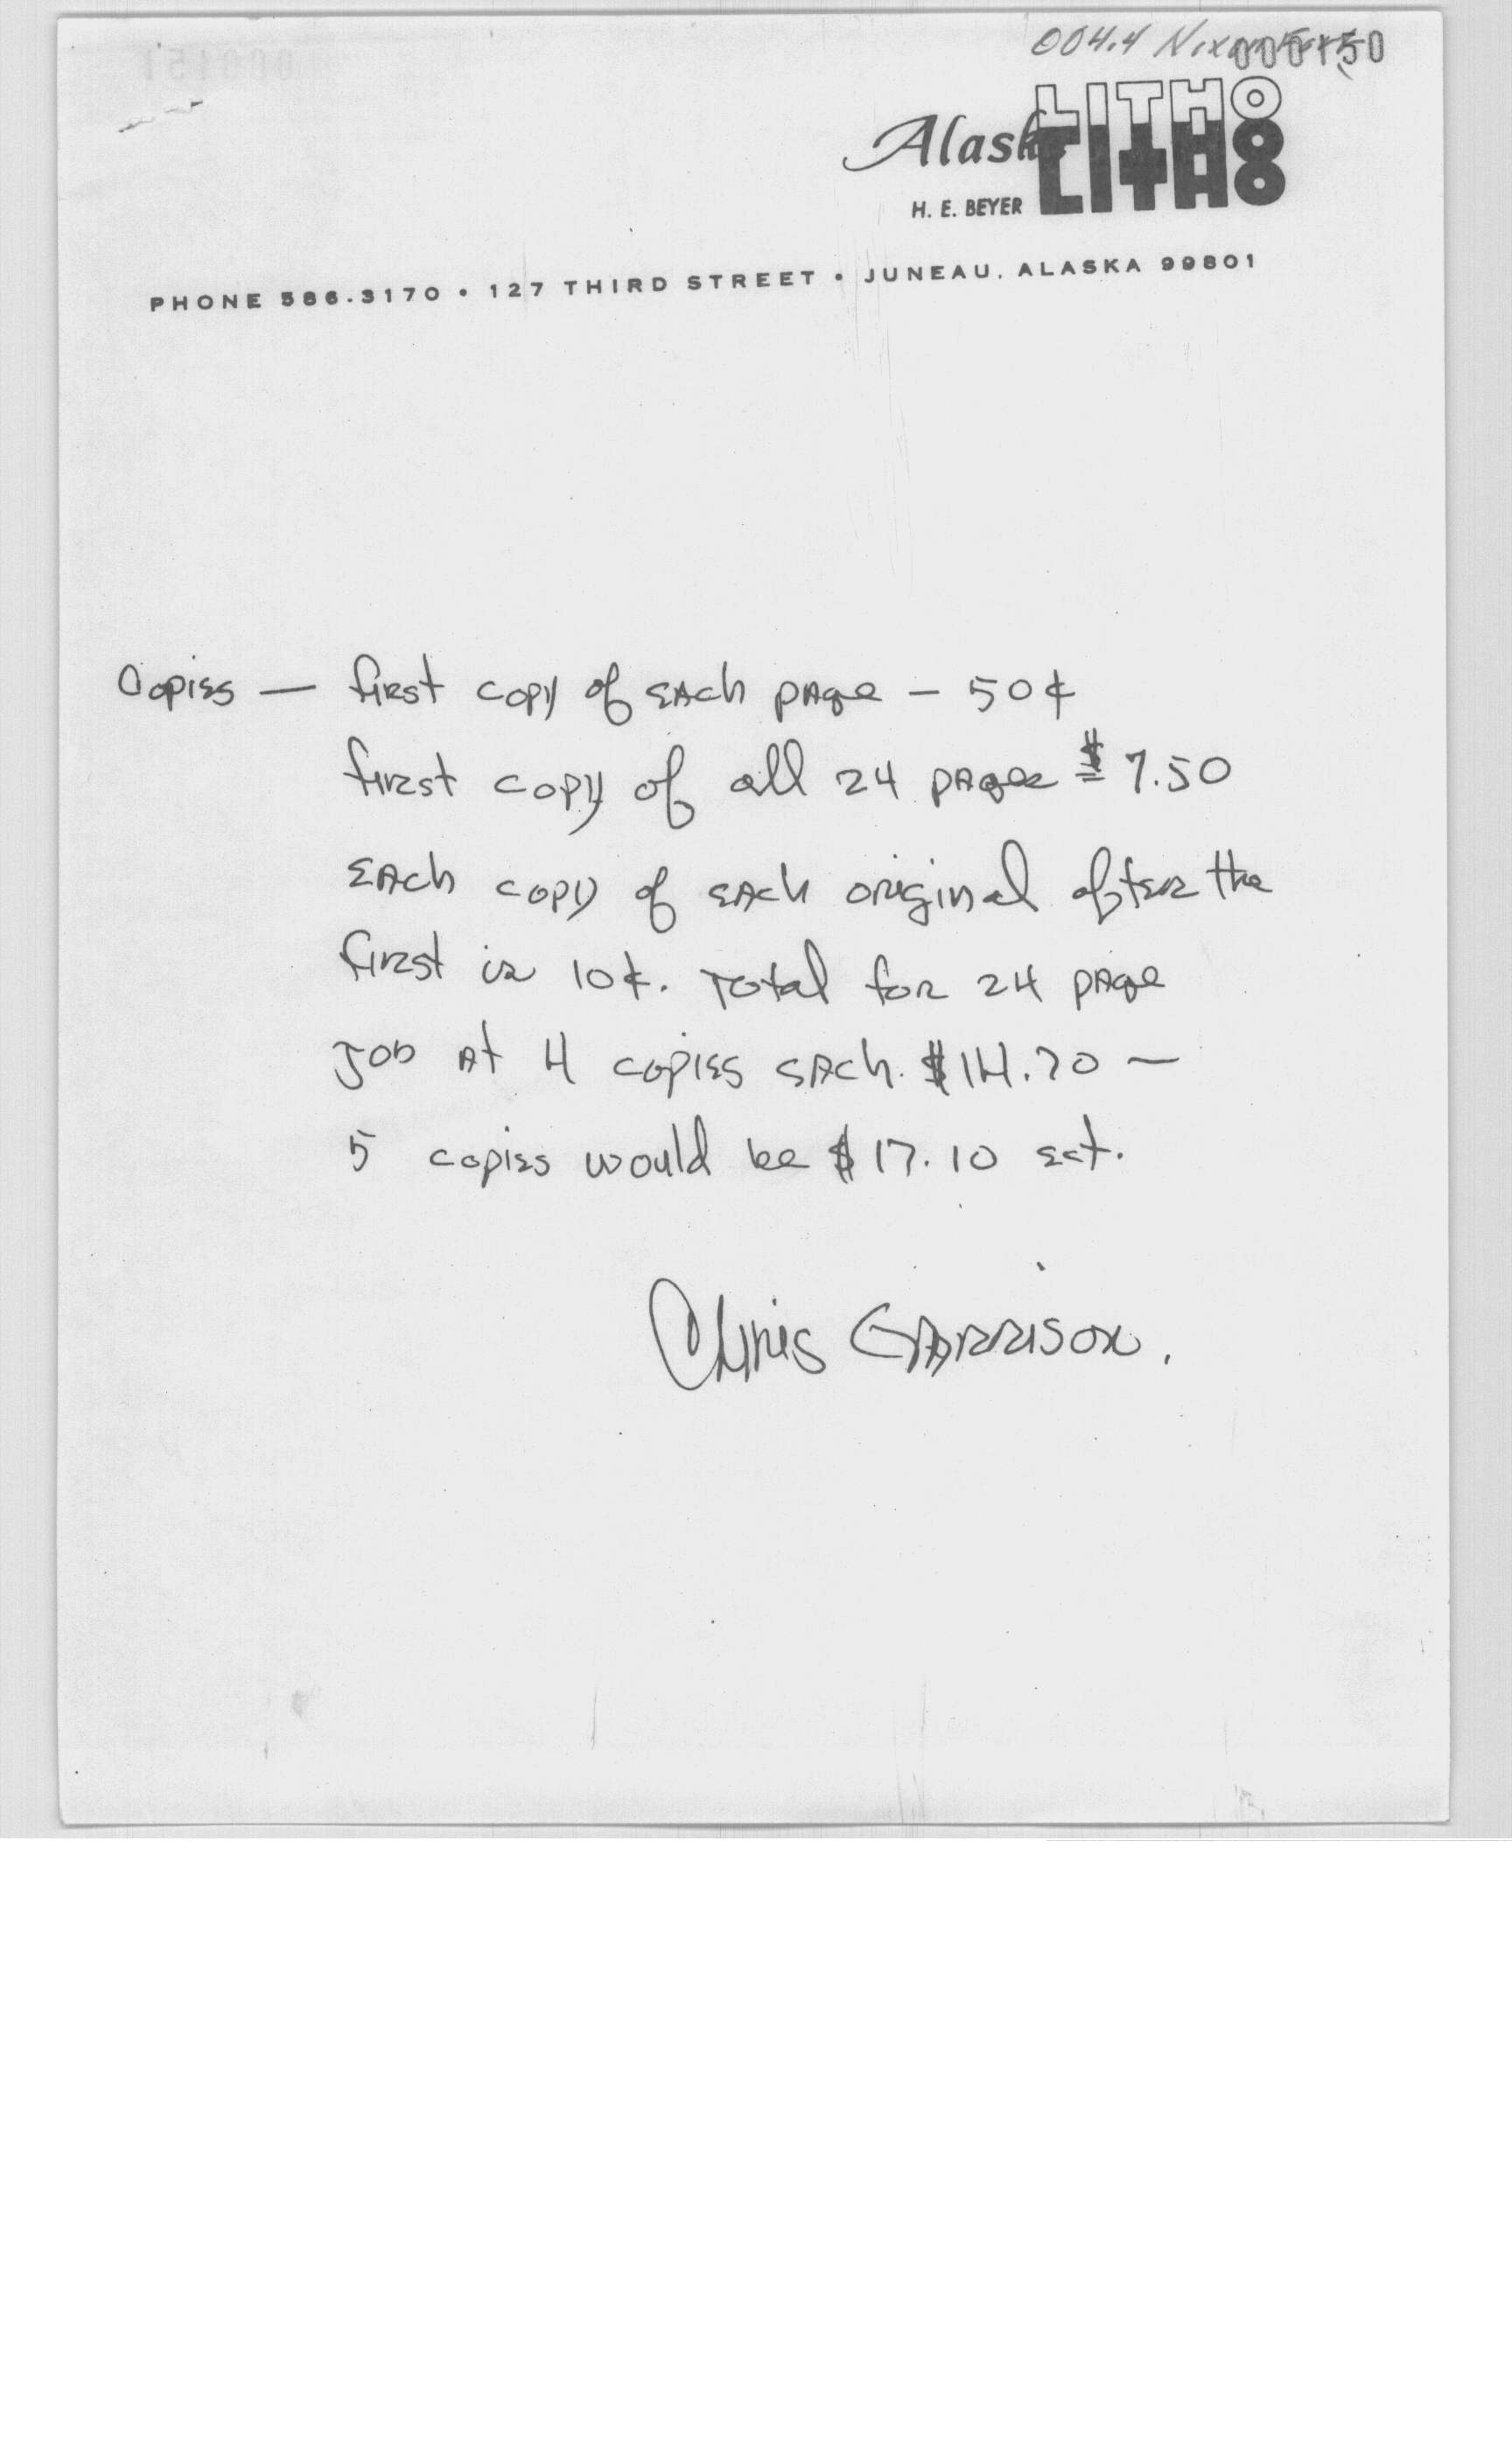 004.4 Nixon
000150
Alaska LITHO
LITHO
H. E. BEYER
PHONE 586-3170 • 127 THIRD STREET • JUNEAU, ALASKA 99801
Copies — first copy of each page — 50¢
first copy of all 24 pages = $7.50
Each copy of each original after the
first is 10¢. Total for 24 page
Job at 4 copies each. $14.70 —
5 copies would be $17.10 ect.
Chris Garrison.